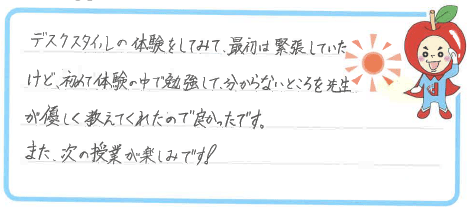 デスクスタイルの体験をしてみて、最初は緊張していた
けど、初めて体験の中で勉強して、分からないところを先生
が優しく教えてくれたので良かったです。
また、次の授業が楽しみです!